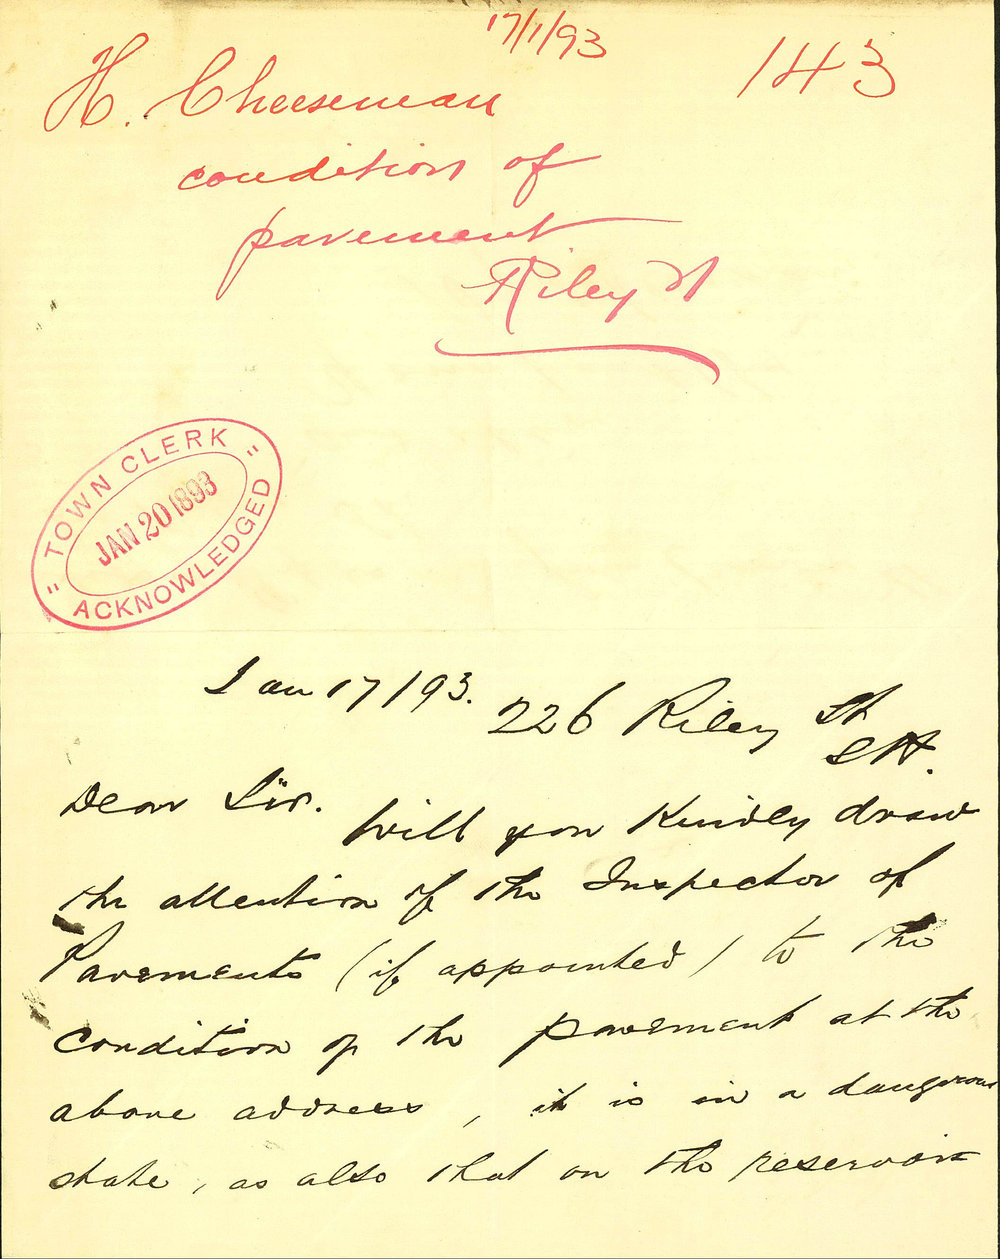 17/1/93
143
H. Cheeseman
condition of
pavement
Riley St
" TOWN CLERK "
JAN 20 1893
ACKNOWLEDGED
Jan 17/93.
226 Riley St
S.H.
Dear Sir.
Will you Kindly draw
the attention of the Inspector of
Pavements (if appointed) to the
condition of the pavement at the
above address, it is in a dangerous
state, as also that on the reservoir